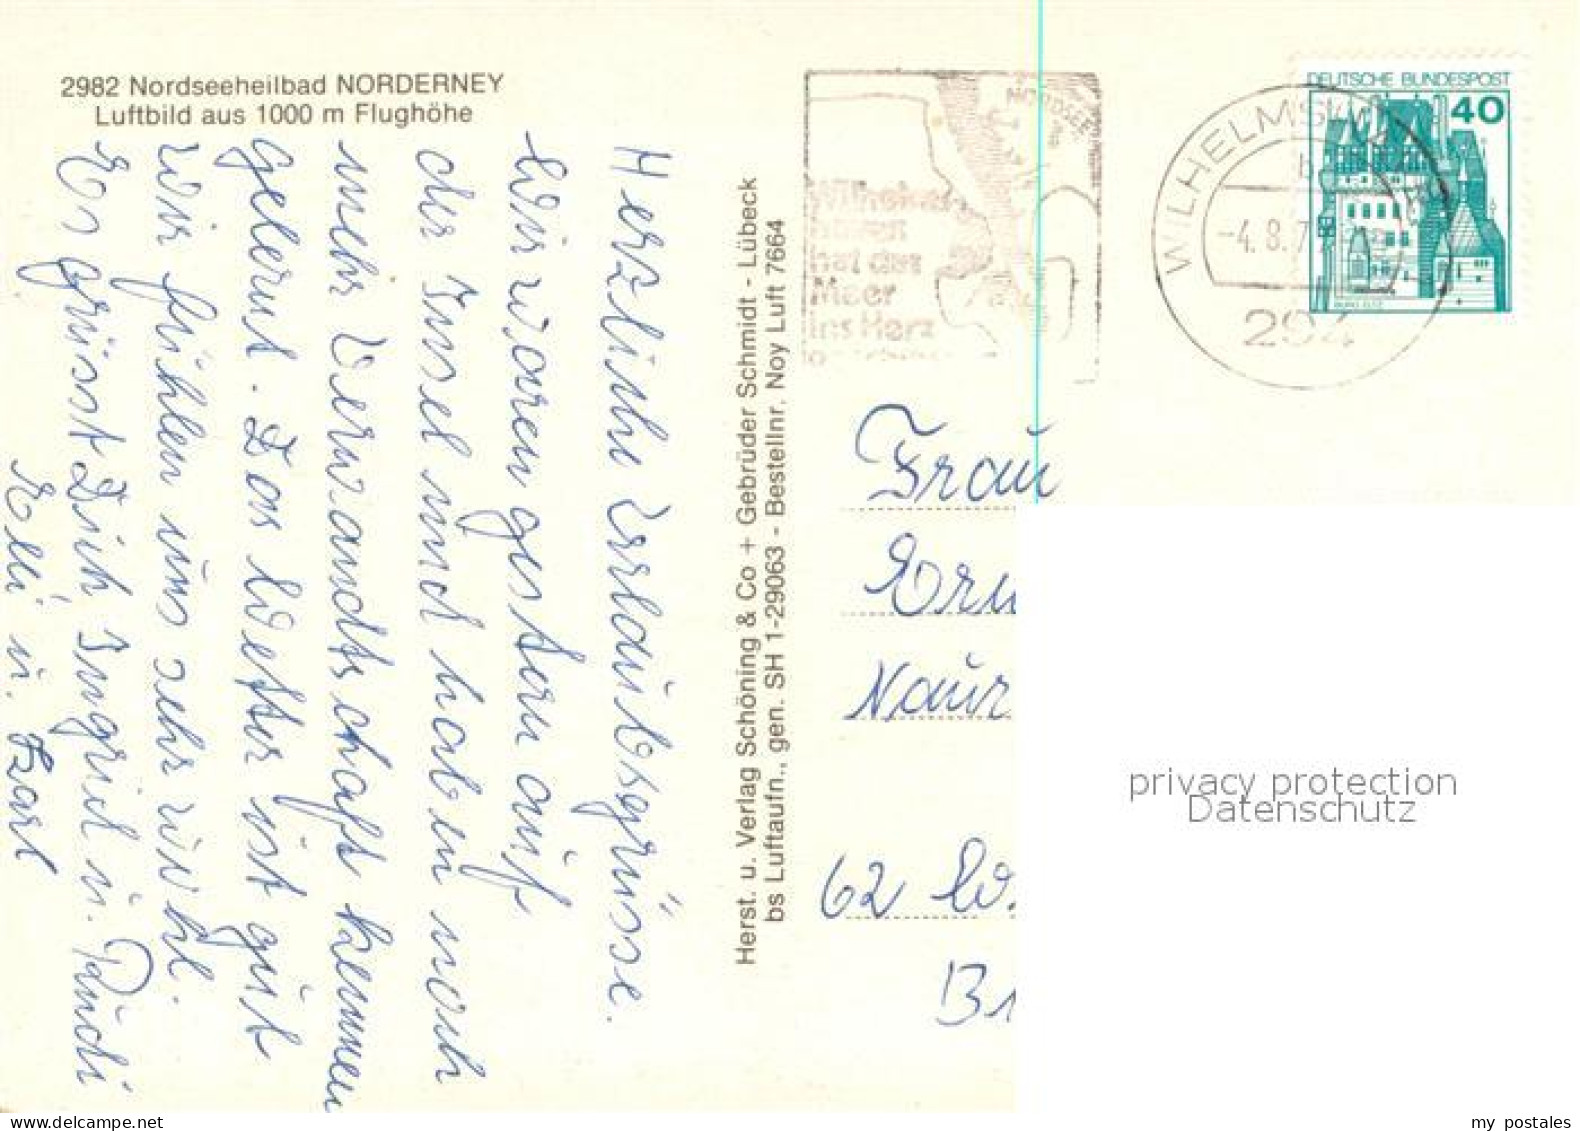 2982 Nordseeheilbad NORDERNEY
Luftbild aus 1000 m Flughöhe
Herzliche Urlaubsgrüsse.
Wir waren gestern auf
der Insel und haben noch
mehr Verwandtschaft kennen
gelernt. Das Wetter ist gut
wir fühlen uns sehr wohl.
Es grüsst Dich Ingrid u. Rudi
Elli u. Karl
Herst. u. Verlag Schöning & Co + Gebrüder Schmidt - Lübeck
bs Luftaufn., gen. SH 1-29063 - Bestellnr. Noy Luft 7664
NORDSEE
Wilhelms-
haven
hat das
Meer
ins Herz
WILHELMSHAVEN
-4.8.7
294
DEUTSCHE BUNDESPOST
40
BURG ELTZ
Frau
62 W.
privacy protection
Datenschutz
my postales